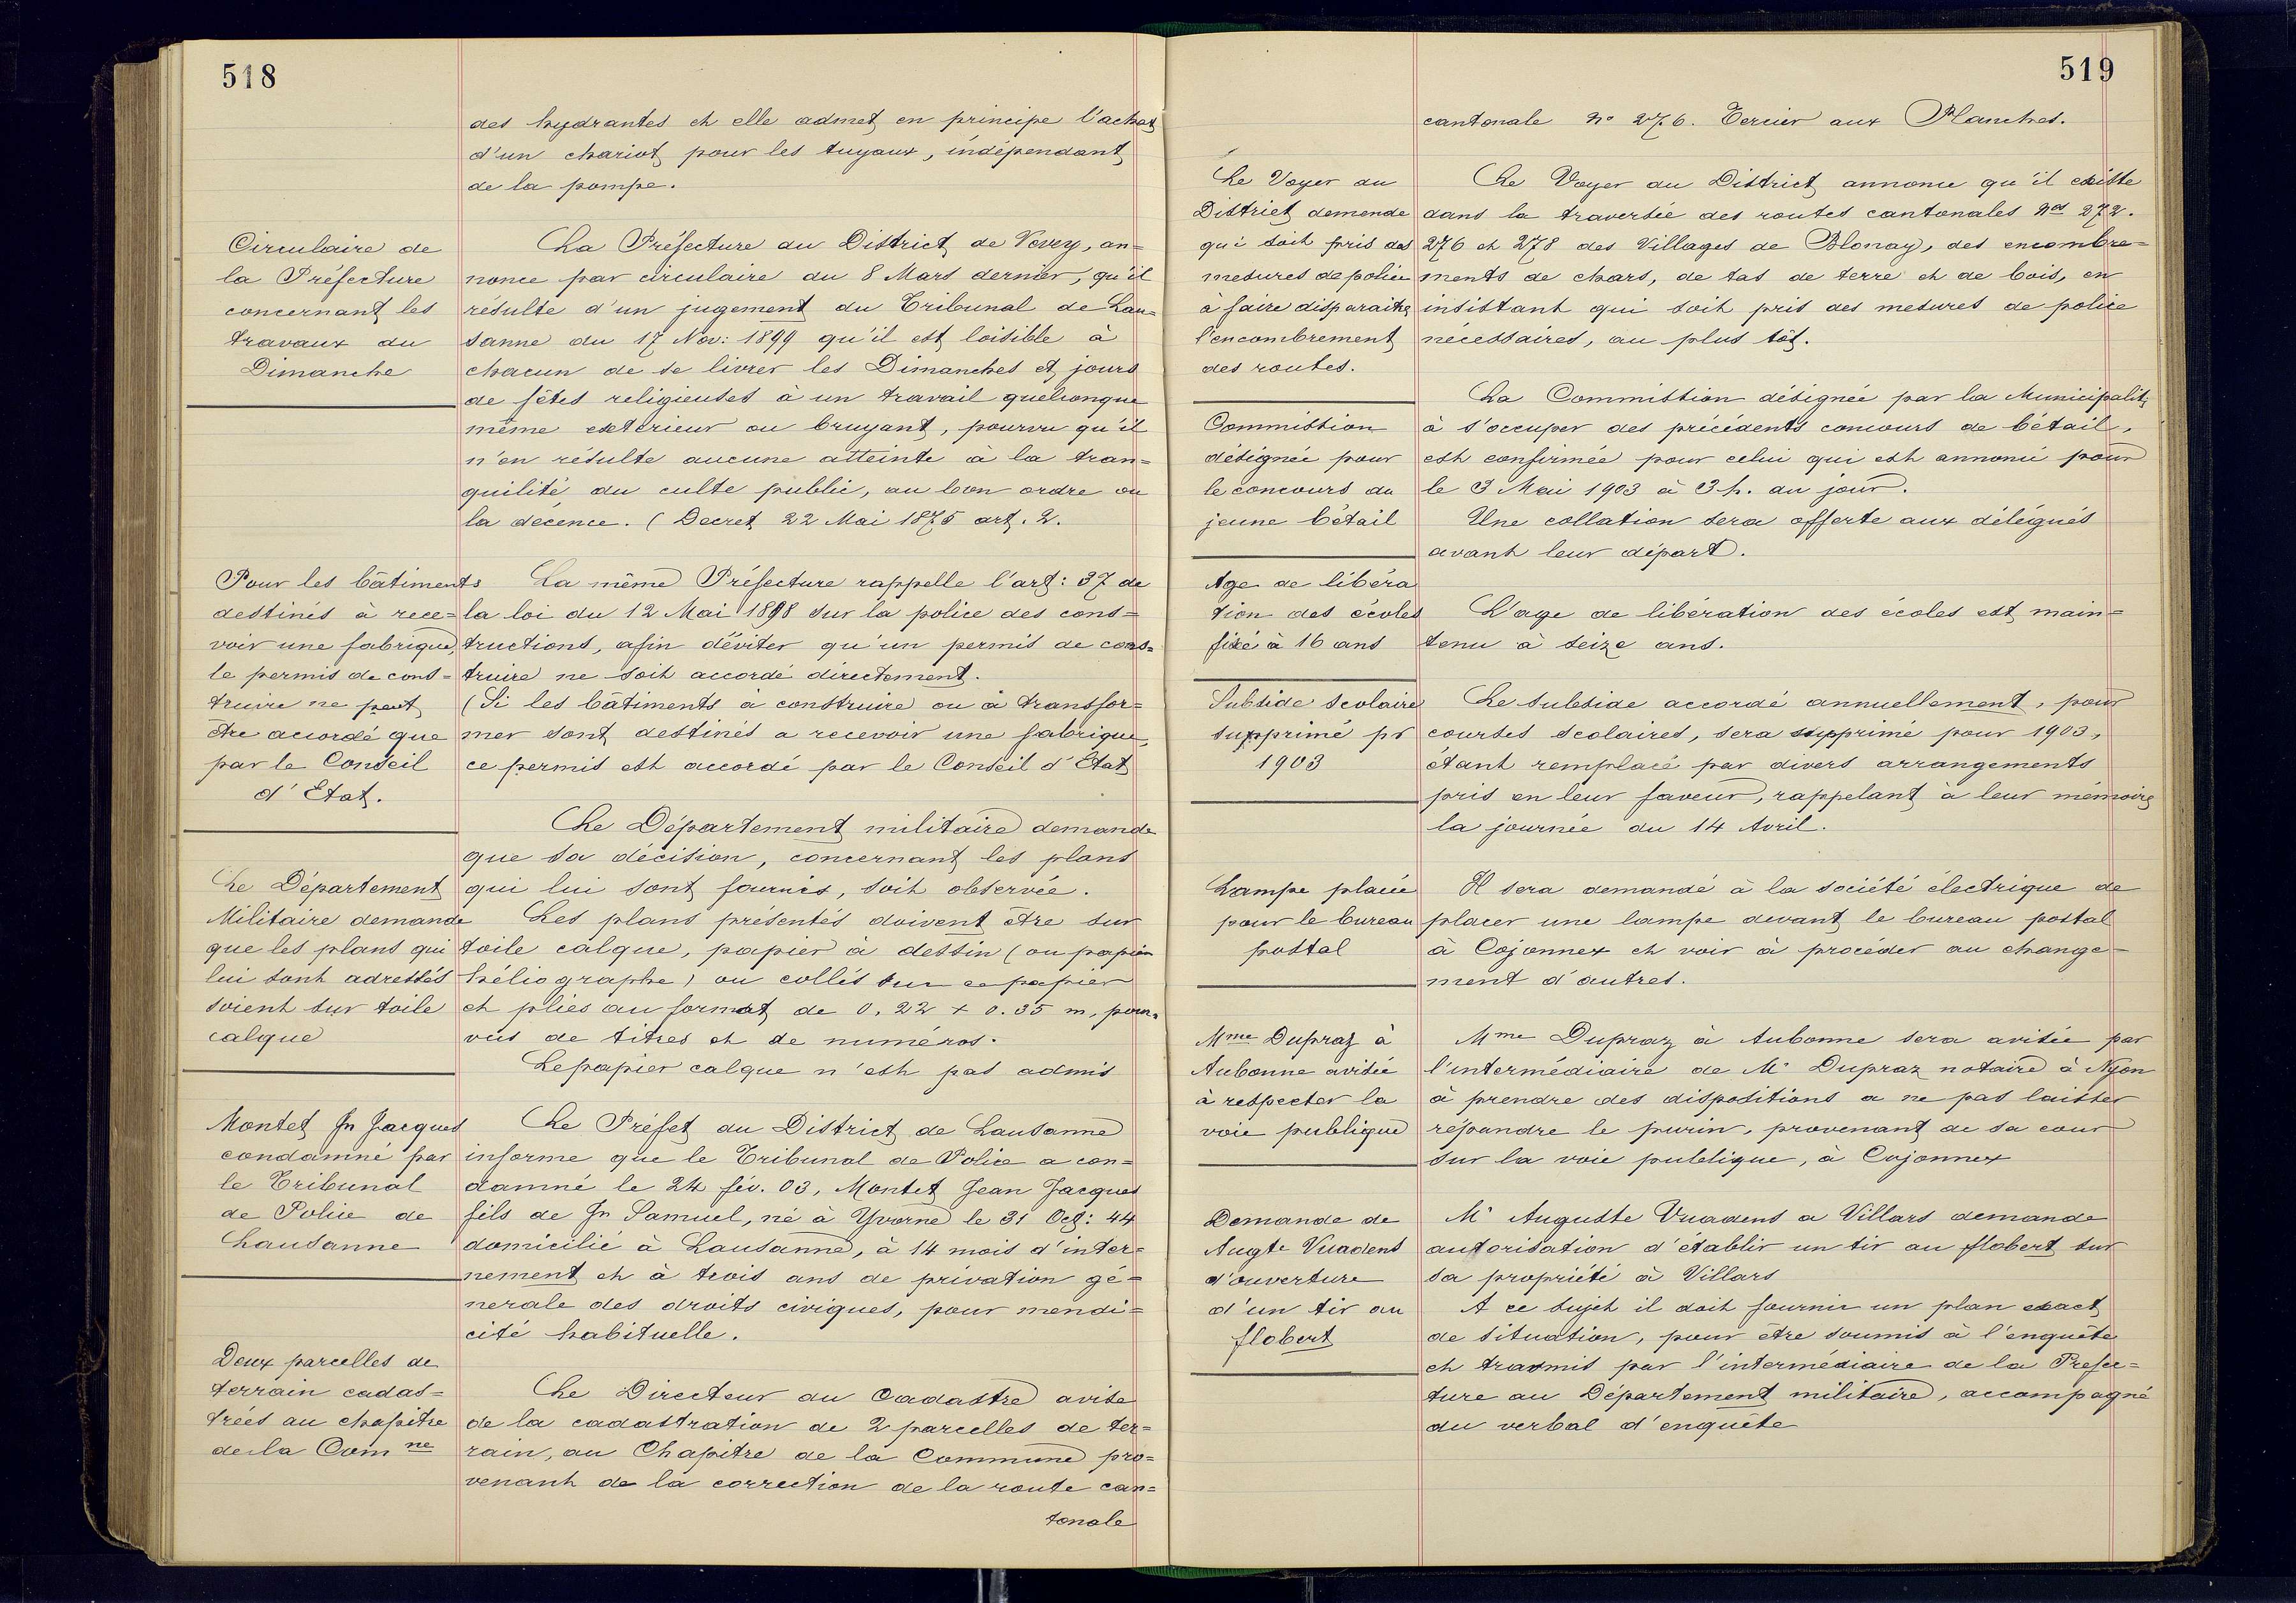 518
des hydrantes et elle admet en principe l'achat
d'un chariot pour les tuyaux, indépendant
de la pompe.
Circulaire de
la Préfecture
concernant les
travaux du
Dimanche
La Préfecture du District de Vevey, an=
nonce par circulaire du 8 Mars dernier, qu'il
résulte d'un jugement du Tribunal de Lau=
sanne du 17 Nov: 1899 qu'il est loisible à
chacun de se livrer les Dimanches et jours
de fêtes religieuses à un travail quelconque
même exterieur ou bruyant, pourvu qu'il
n'en résulte aucune atteinte à la tran=
quilité du culte public, au bon ordre ou
la décence. (Decret 22 Mai 1875 art. 2.
Pour les bâtiments
destinés à rece=
voir une fabrique,
le permis de cons=
truire ne peut
être accordé que
par le Conseil
d'Etat.
La même Préfecture rappelle l'art: 37 de
la loi du 12 Mai 1898 sur la police des cons=
tructions, afin d'éviter qu'un permis de cons=
truire ne soit accordé directement.
(Si les bâtiments à construire ou à transfor=
mer sont destinés a recevoir une fabrique,
ce permis est accordé par le Conseil d'État
Le Département
Militaire demande
que les plans qui
lui sont adressés
soient sur toile
calque
Le Département militaire demande
que sa décision, concernant les plans
qui lui sont fournis, soit observée.
Les plans présentés doivent être sur
toile calque, papier à dessin (ou papier
héliographe) ou collés sur ce papier
et pliés au format de 0,22 + 0.35 m, pour=
vus de titres et de numéros.
Le papier calque n'est pas admis
Montet Jn Jacques
condamné par
le Tribunal
de Police de
Lausanne
Le Préfet du District de Lausanne
informe que le Tribunal de Police a con=
damné le 24 fév. 03, Montet Jean Jacques
fils de Jn Samuel, né à Yvorne le 31 Oct: 44
domicilié à Lausanne, à 14 mois d'inter=
nement et à trois ans de privation gé=
nerale des droits civiques, pour mendi=
cité habituelle.
Deux parcelles de
terrain cadas=
trées au chapitre
de la Com ne
Le Directeur du Cadastre avise
de la cadastration de 2 parcelles de ter=
rain, au Chapitre de la Commune pro=
venant de la correction de la route can=
tonale
519
cantonale No 276. Tercier aux Planches.
Le Voyer du
District demende
qui soit pris des
mesures de police
à faire disparaitre
l'encombrement
des routes.
Le Voyer du District annonce qu'il existe
dans la traversée des routes cantonales Nos 272.
276 et 278 des Villages de Blonay, des encombre=
ments de chars, de tas de terre et de bois, en
insistant qui soit pris des mesures de police
nécessaires, au plus tôt.
Commission
désignée pour
le concours du
jeune bétail
La Commission désignée par la Municipalité
à s'occuper des précédents concours de bétail,
est confirmée pour celui qui est annoncé pour
le 3 Mai 1903 à 3 h. du jour.
Une collation sera offerte aux délégués
avant leur départ.
Age de libéra
tion des écoles
fixé à 16 ans
L'age de libération des écoles est main=
tenu à seize ans.
Subside scolaire
supprimé pr
1903
Le subside accordé annuellement, pour
courses scolaires, sera supprimé pour 1903,
étant remplacé par divers arrangements
pris en leur faveur, rappelant à leur mémoire
la journée du 14 Avril.
Lampe placée
pour le bureau
postal
Il sera demandé à la société électrique de
placer une lampe devant le bureau postal
à Cojonnex et voir à procéder au change=
ment d'autres.
Mme Dupraz à
Aubonne avisée
à respecter la
voie publique
Mme Dupraz à Aubonne sera avisée par
l'intermédiaire de Mr Dupraz notaire à Nyon
à prendre des dispositions a ne pas laisser
répandre le purin, provenant de sa cour
sur la voie publique, à Cojonnex
Demande de
Augte Vuadens
d'ouverture
d'un tir au
flobert
Mr Auguste Vuadens a Villars demande
autorisation d'établir un tir au flobert sur
sa propriété à Villars
A ce sujet il doit fournir un plan exact
de situation, pour être soumis à l'enquête
et transmis par l'intermédiaire de la Prefec=
ture au Département militaire, accompagné
du verbal d'enquête